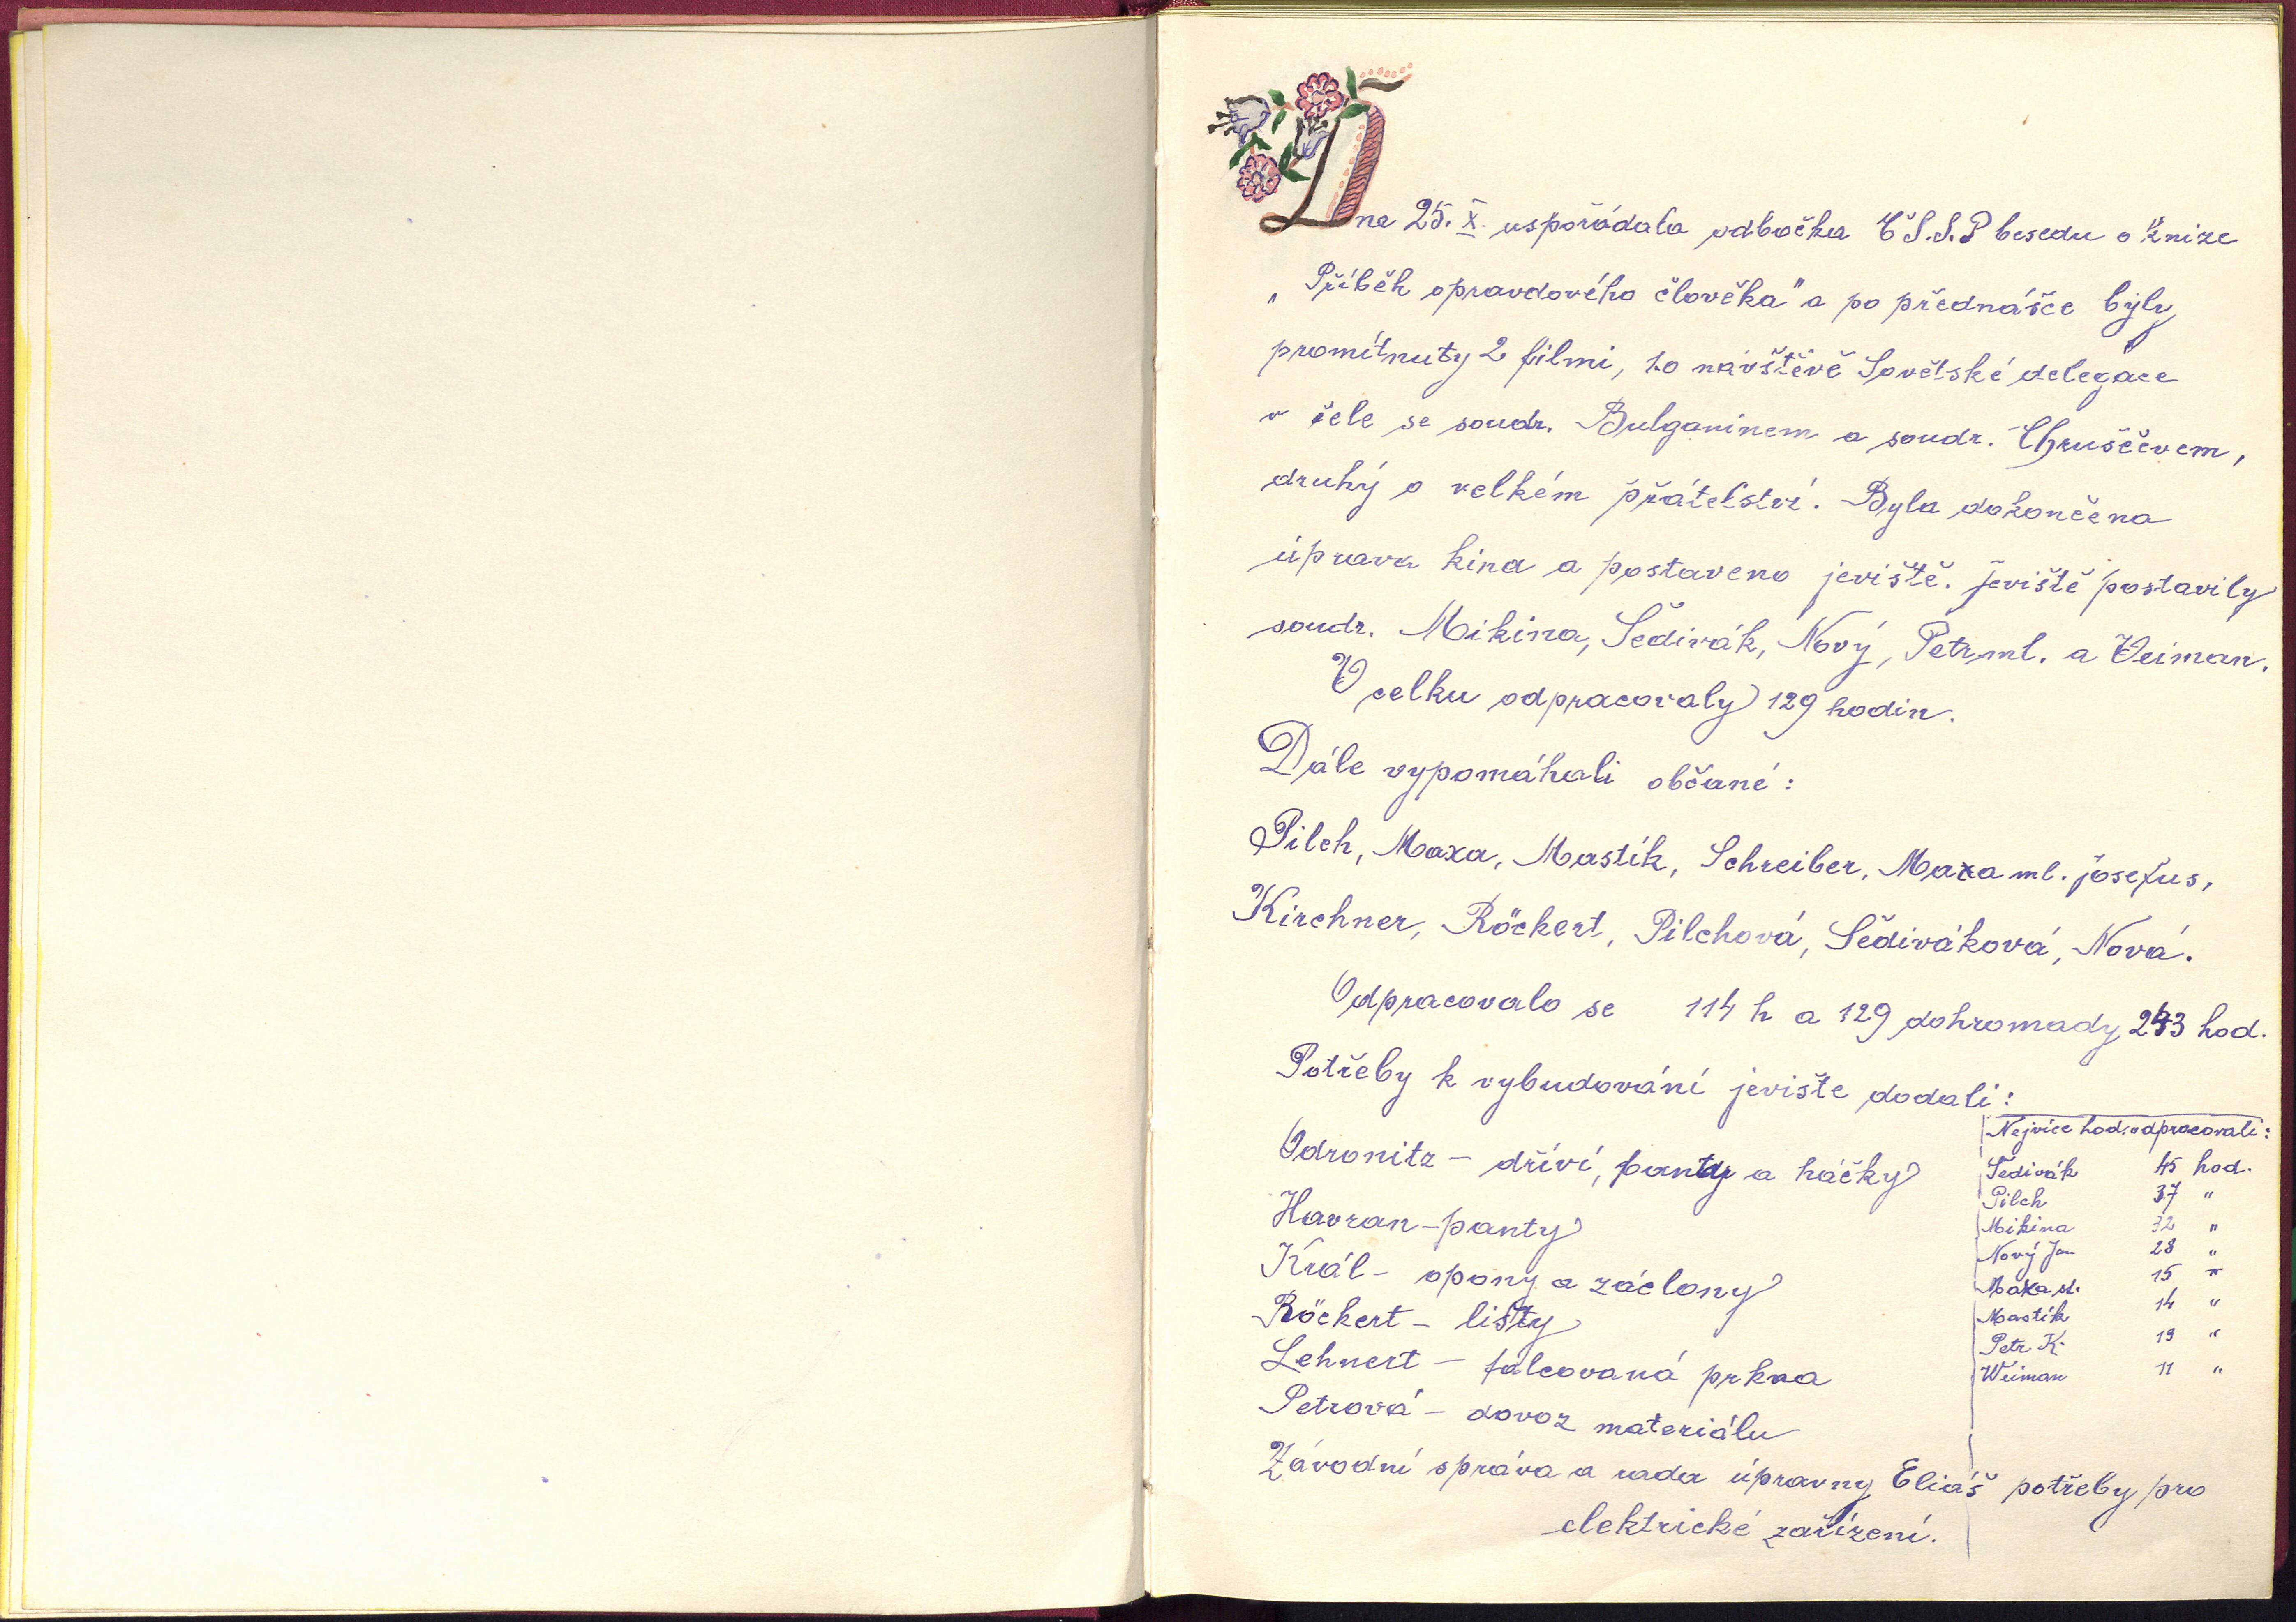 Dne 25. X. uspořádala odbočka Č S.S.P besedu o knize
„Příběh opravdového člověka" a po přednášce byly
promítnuty 2 filmi, 1.o návštěvě Sovětské delegace
v čele se soudr. Bulganinem a soudr. Chruščevem,
druhý o velkém přátelství. Byla dokončena
úprava kina a postaveno jeviště. Jeviště postavily
soudr. Mikina, Šedivák, Nový, Petr ml. a Veiman.
V celku odpracovaly 129 hodin.
Dále vypomáhali občané:
Pilch, Maxa, Mastík, Schreiber, Maxa ml. Josefus,
Kirchner, Röckert, Pilchová, Šediváková, Nová.
Odpracovalo se 114 h a 129 dohromady 243 hod.
Potřeby k vybudování jevište dodali:
Odronitz – dříví, panty a háčky
Havran – panty
Král – opony a záclony
Röckert – lišty
Lehnert – falcovaná prkna
Petrová – dovoz materiálu
Závodní správa a rada úpravny Eliáš potřeby pro
elektrické zařízení.
Nejvíce hod. odpracovali:
Šedivák 45 hod.
Pilch 37 "
Mikina 32 "
Nový Jan 28 "
Maxa st. 15 "
Mastík 14 "
Petr K. 19 "
Weiman 11 "